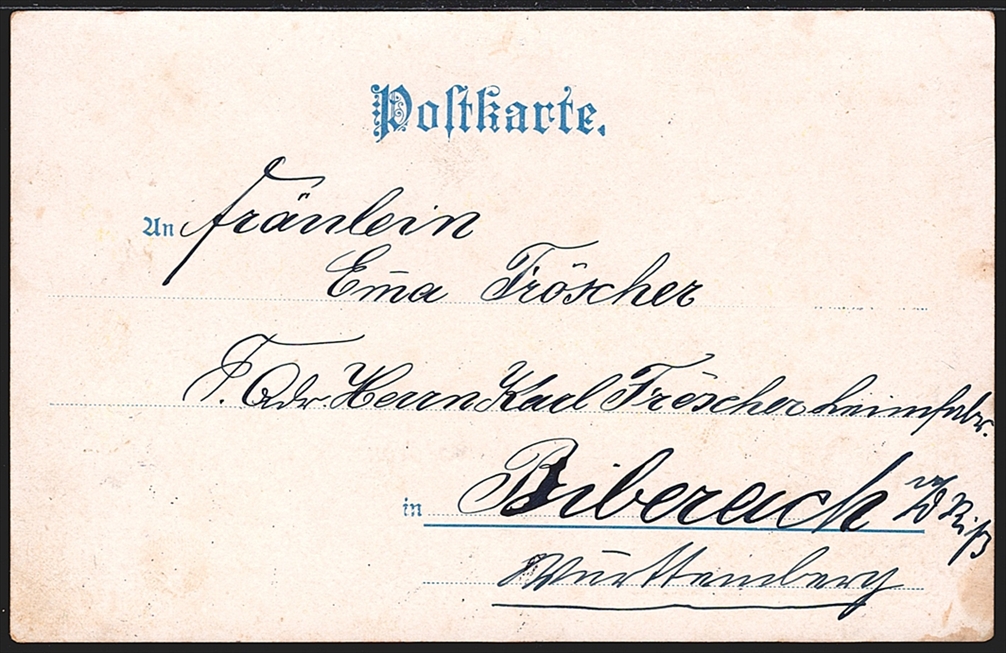 Postkarte.
An Fräulein
Em̄a Fröscher
F. Adr. Herrn Karl Fröscher Leimfabr.
in Biberach a/d Riß
Württemberg